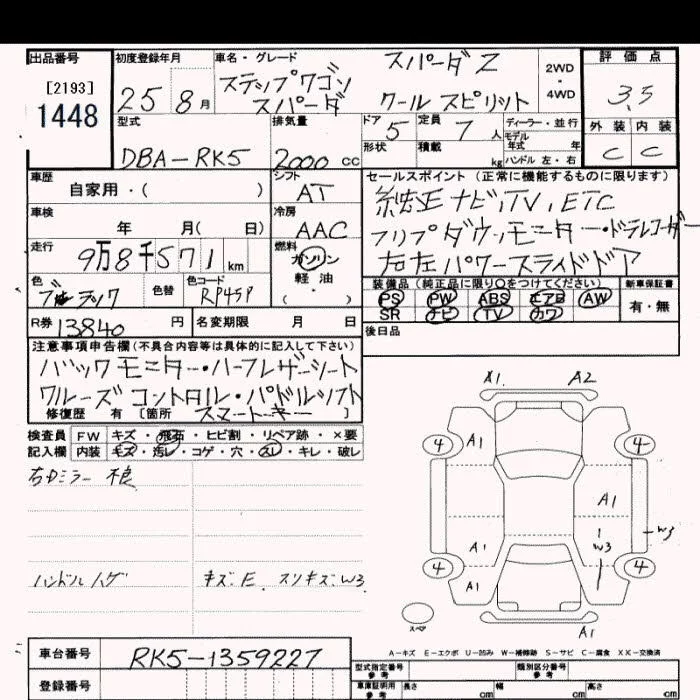 出品番号 初度登録年月 車名・グレード スパーダZ 2WD・4WD 評価点
[2193] 1448 25 8月 ステップワゴン スパーダ クールスピリット 3.5
型式 排気量 ドア 5 定員 7人 ディーラー・並行 外装 内装
DBA-RK5 2000cc 形状 積載 kg モデル年式 年 ハンドル 左・右 C C
車歴 自家用・( ) シフト AT セールスポイント(正常に機能するものに限ります)
車検 年 月( 日) 冷房 AAC 純正ナビ,TV,ETC
走行 9万8千571km 燃料 ガソリン 軽油 ・( ) フリップダウンモニター・ドラレコーダー
右左パワースライドドア
色 ブラック 色替 色コード RP45P 装備品(純正品に限り○をつけてください) 新車保証書
PS PW ABS エアB AW 有・無
SR ナビ TV カワ
R券 13840円 名変期限 月 日 後日品
注意事項申告欄(不具合内容等は具体的に記入して下さい)
バックモニター・ハーフレザーシート
クルーズコントロル・パドルシフト
修復歴 有 [箇所 スマートキー ]
検査員 FW キズ・飛石・ヒビ割・リペア跡・×要
記入欄 内装 キズ・汚レ・コゲ・穴・スレ・キレ・破レ
右ドミラー 不良
ハンドルハゲ キズ・E スリキズ・W3
A1 A2
4 A1 4
A1
A1 W3 W3
4 A1 4
スペア A1
A-キズ E-エクボ U-凹み W-補修跡 S-サビ C-腐食 XX-交換済
車台番号 RK5-1359227 型式指定番号 参考 類別区分番号 参考
登録番号 車庫証明用 参考 長さ cm 幅 cm 高さ cm